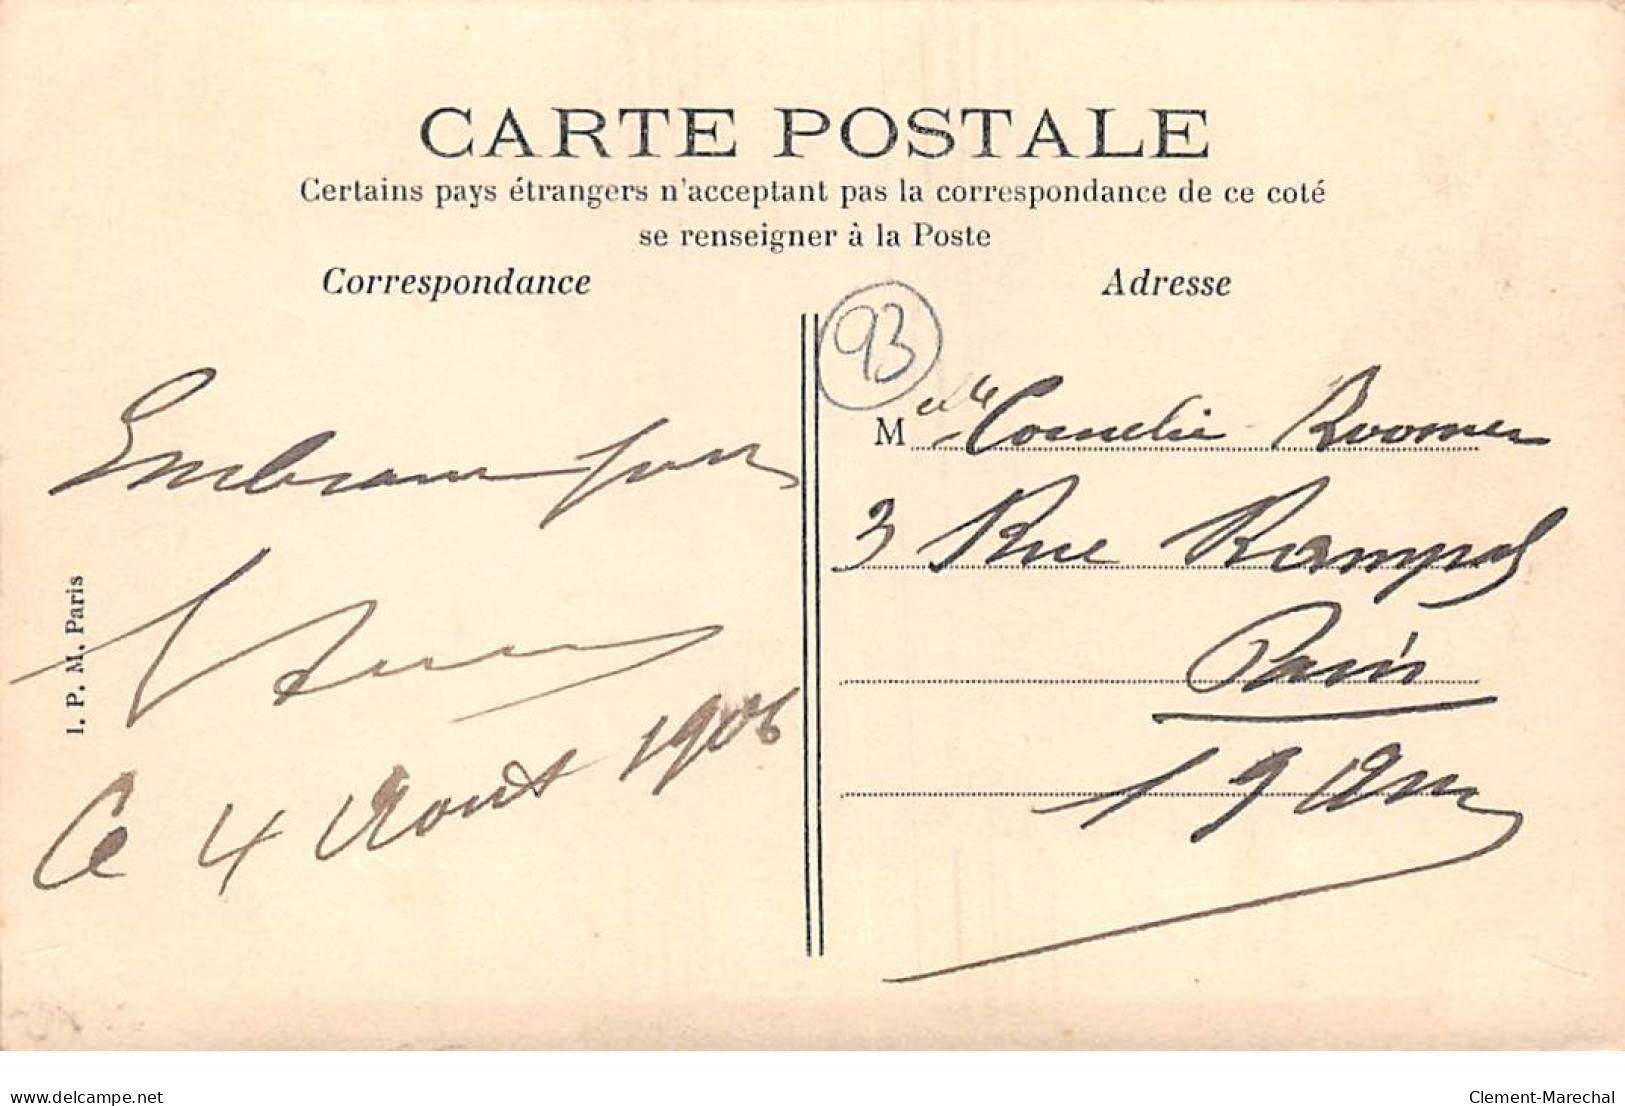 CARTE POSTALE
Certains pays étrangers n'acceptant pas la correspondance de ce coté
se renseigner à la Poste
Correspondance
Adresse
93
Melle Cornelie Roomer
3 Rue Rampal
Paris
19 Arr
Ce 4 Aout 1906
I. P. M. Paris
delcampe.net
Clement-Marechal